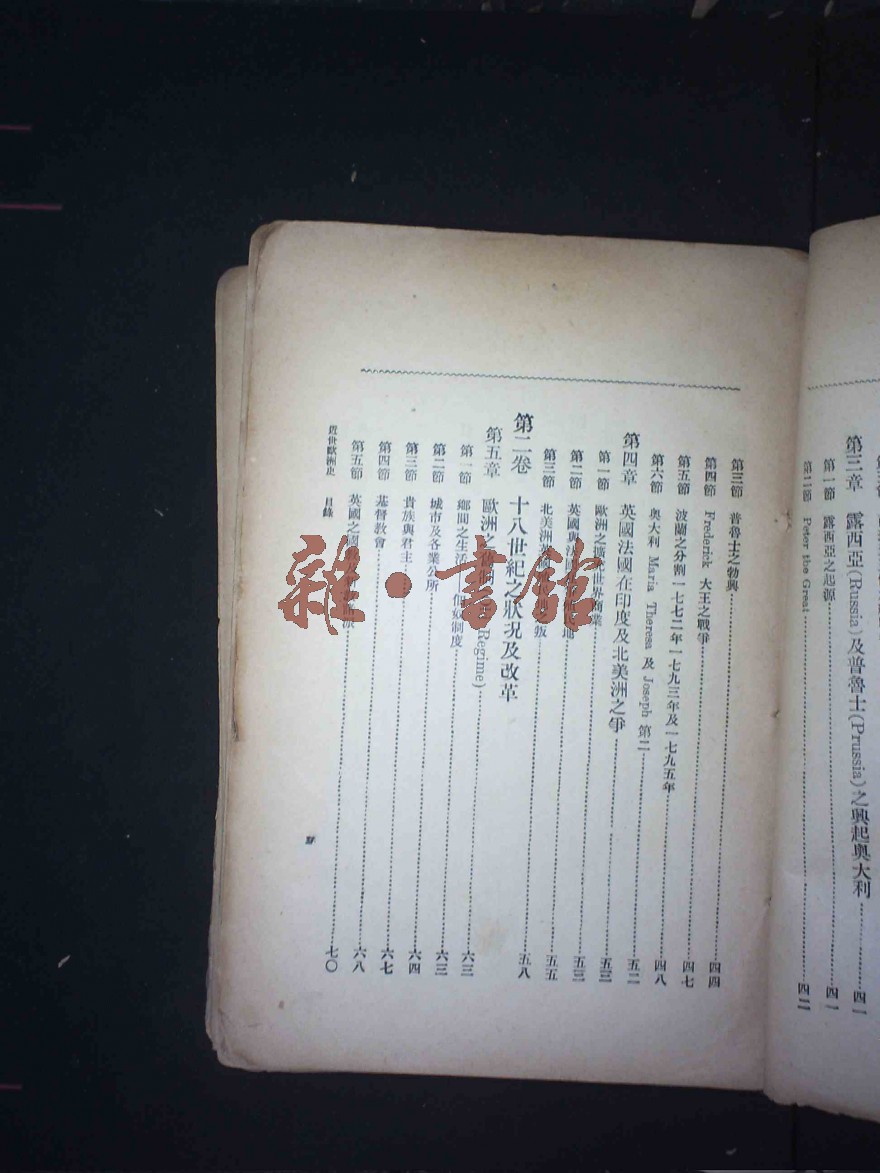 第三章　露西亞(Russia)及普魯士(Prussia)之興起奧大利……四一
第一節　露西亞之起源……四一
第二節　Peter the Great……四二
第三節　普魯士之勃興……四四
第四節　Frederick 大王之戰爭……四七
第五節　波蘭之分割一七七二年一七九三年及一七九五年……四八
第六節　奧大利 Maria Theresa 及 Joseph 第二……五二
第四章　英國法國在印度及北美洲之爭……五三
第一節　歐洲之擴充世界商業……五三
第二節　英國與法國地……五五
第三節　北美洲英之叛……五八
第二卷　十八世紀之狀況及改革
第五章　歐洲之舊制Regime)……六三
第一節　鄉間之生活　佃奴制度……六三
第二節　城市及各業公所……六四
第三節　貴族與君主……六七
第四節　基督教會……六八
第五節　英國之國……七〇
近世歐洲史　目錄
雜·書館